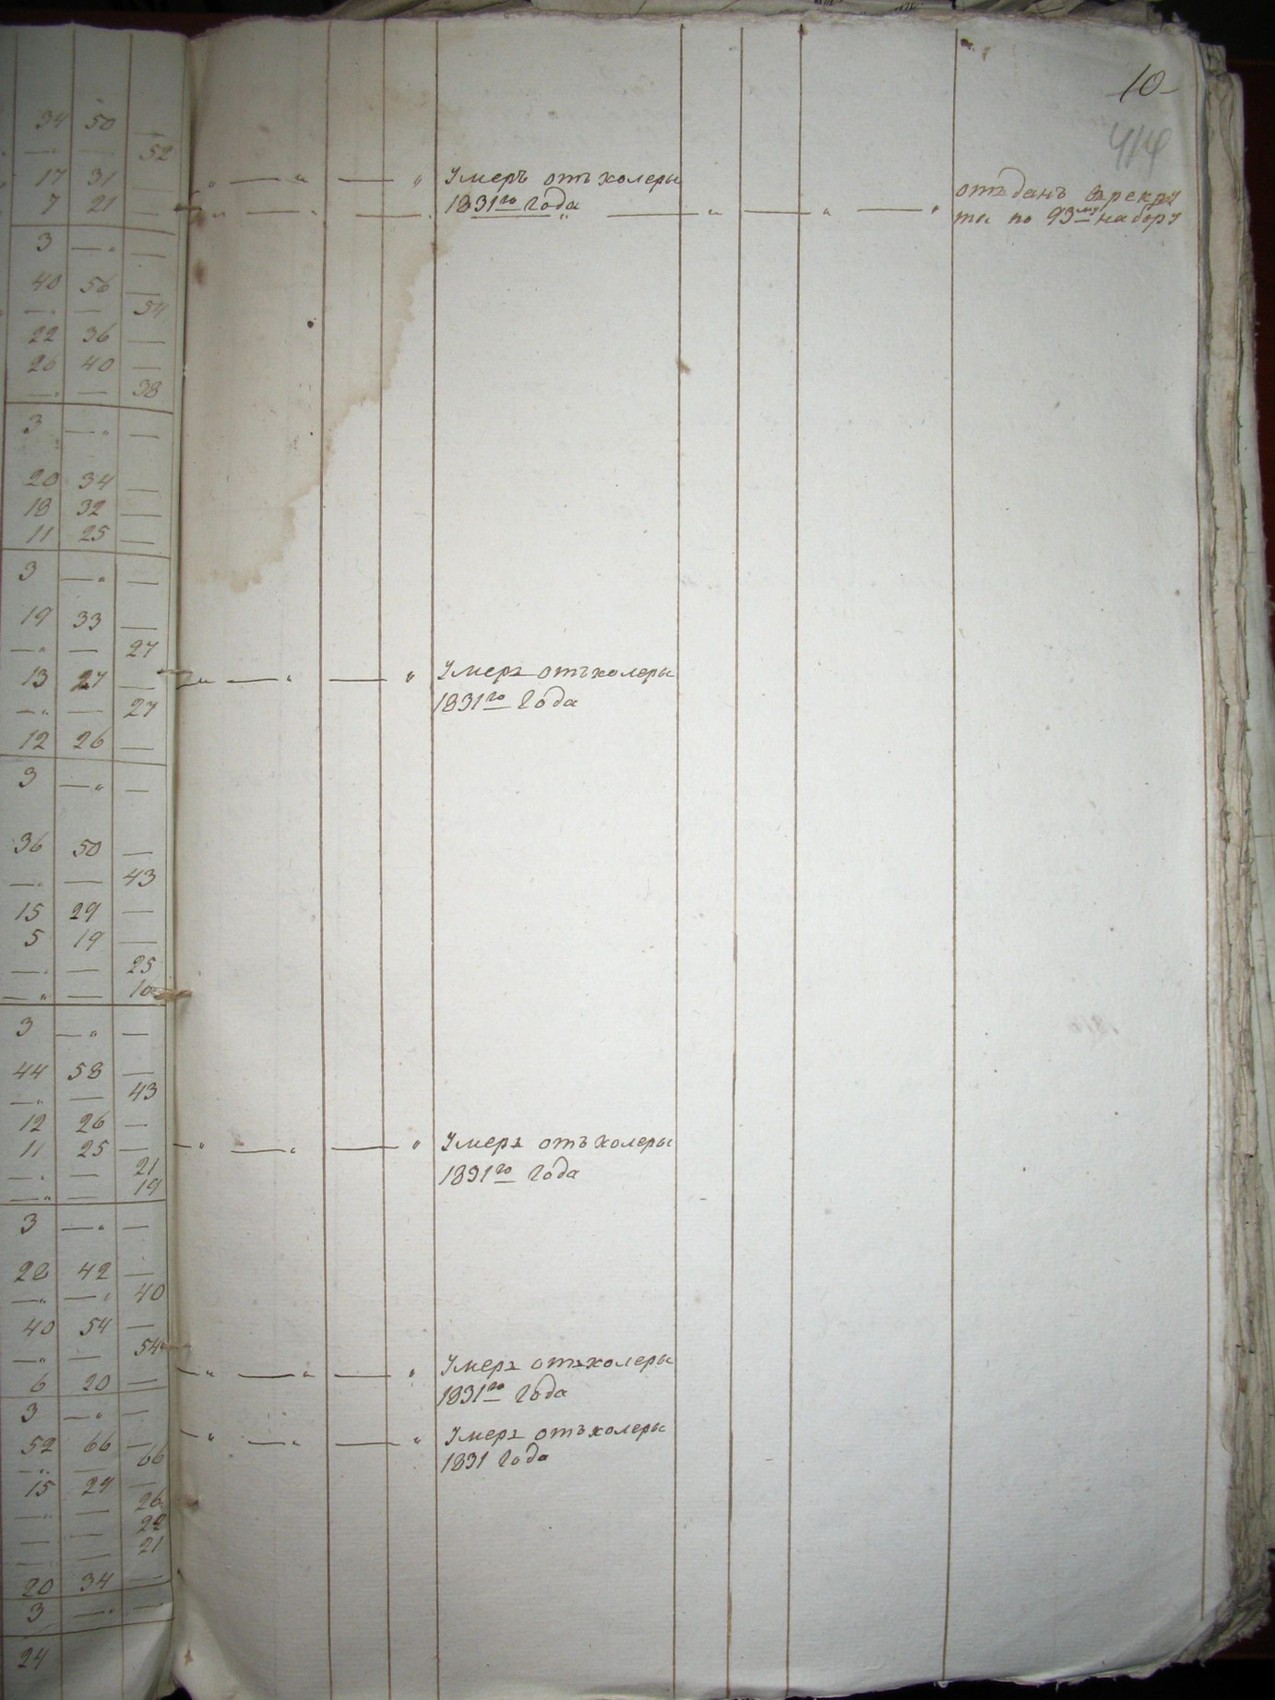 10
414
34 50 —
— — 52
17 31 —
7 21 —
Умеръ отъ холеры
1831го Года
отъданъ врекру
ты по 93му набору
3 — —
40 56 —
— — 54
22 36 —
26 40 —
— — 38
3 — —
20 34 —
18 32 —
11 25 —
3 — —
19 33 —
— — 27
13 27 —
Умеръ отъ холеры
1831го Года
— — 27
12 26 —
3 — —
36 50 —
— — 43
15 29 —
5 19 —
— — 25
— — 10
3 — —
44 58 —
— — 43
12 26 —
11 25 —
Умеръ отъ холеры
1831го Года
— — 21
— — 19
3 — —
28 42 —
— — 40
40 54 —
— — 54
6 20 —
Умеръ отъ холеры
1831го Года
3 — —
52 66 —
Умеръ отъ холеры
1831 Года
— — 66
15 29 —
— — 26
— — 22
— — 21
20 34 —
3 — —
24